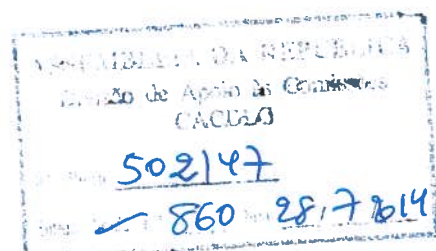 ASSEMBLEIA DA REPÚBLICA
Divisão de Apoio às Comissões
CACDLG
502147
860 28,7 2014